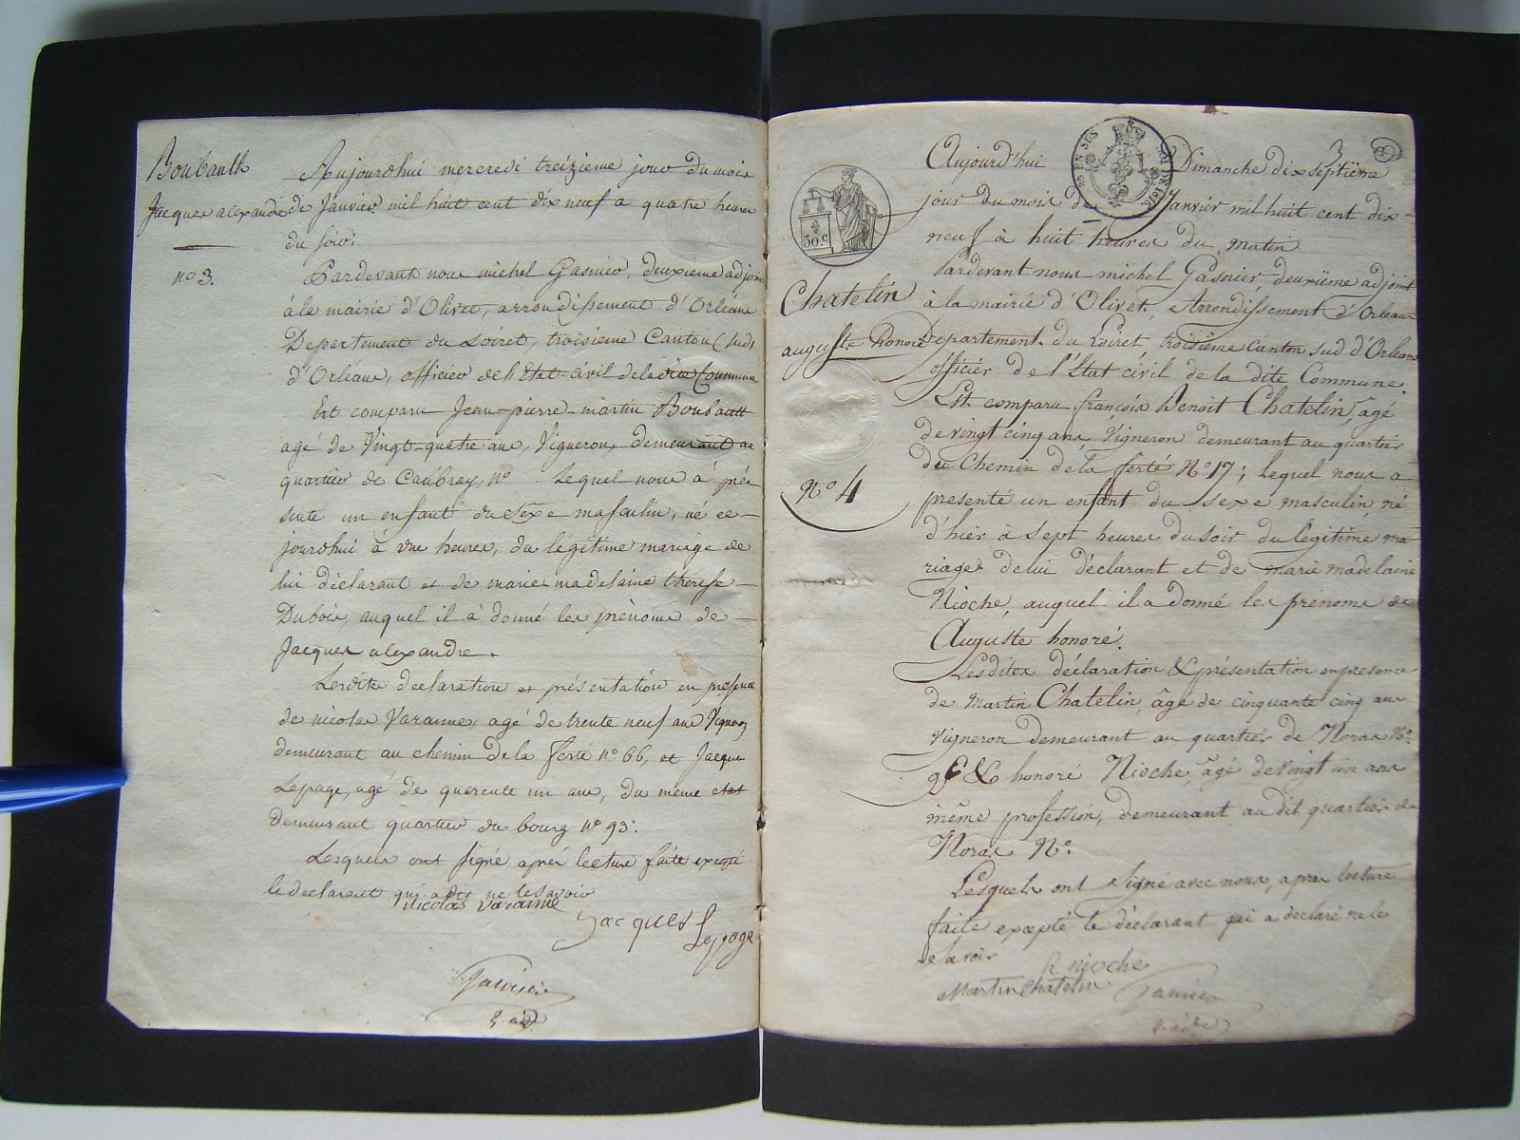 Boubault
Jacques alexandre
n° 3.
Aujourdhui mercredi treizieme jour du mois
de Janvier mil huit cent dix neuf a quatre heures
du soir.
Pardevant nous michel Gasnier, deuxieme adjoint
à la mairie d'Olivet, arrondissement d'Orléans
Departement du Loiret, troisieme Canton (sud)
d'Orléans, officier de l'état-civil de la Commune
Est comparu Jean-pierre-martin Boubault
agé de Vingt-quatre ans, Vigneron, demeurant au
quartier de Caubray, n° Lequel nous à pré
senté un enfant du Sexe masculin, né ce-
jourdhui à une heures, du légitime mariage de
lui déclarant et de marie madelaine therese
Dubois, auquel il à donné les prénoms de
Jacques alexandre.
Lesdites declaration et présentation en présence
de nicolas Varanne, agé de trente neuf ans Vigneron
demeurant au chemin de la ferté n° 66, et Jacques
Lepage, agé de quarente un ans, du même état
demeurant quartier du bourg n° 93.
Lesquels ont signé après lecture faite excepté
le declarant qui a dit ne le savoir
nicolas varanne
Jacques Lepage
Gasnier
2. adj
3
30 c
Chatelin
auguste honoré
N° 4
Aujourd'hui Dimanche dix septième
jour du mois de Janvier mil huit cent dix-
neuf à huit heures du matin
Pardevant nous michel Gasnier deuxième adjoint
à la mairie d'Olivet, Arrondissement d'Orleans
Departement du Loiret troisieme canton sud d'Orleans
officier de l'Etat civil de la dite Commune.
Est comparu françois Benoit Chatelin, âgé
de vingt cinq ans, Vigneron demeurant au quartier
du Chemin de la ferté N° 17; lequel nous a
presenté un enfant du sexe masculin, né
d'hier à sept heures du soir du légitime ma-
riage de lui déclarant et de marie madelaine
Nioche, auquel il a donné les prénoms de
Auguste honoré.
Lesdites déclaration & présentation en presence
de Martin Chatelin, âgé de cinquante cinq ans
vigneron demeurant au quartier de Noras N°
& honoré Nioche, âgé de vingt un ans
même profession, demeurant au dit quartier de
Noras N°.
Lesquels ont signé avec nous, apres lecture
faite excepté le déclarant qui a déclaré ne le
savoir
h nioche
Martin Chatelin
Gasnier
2. adj